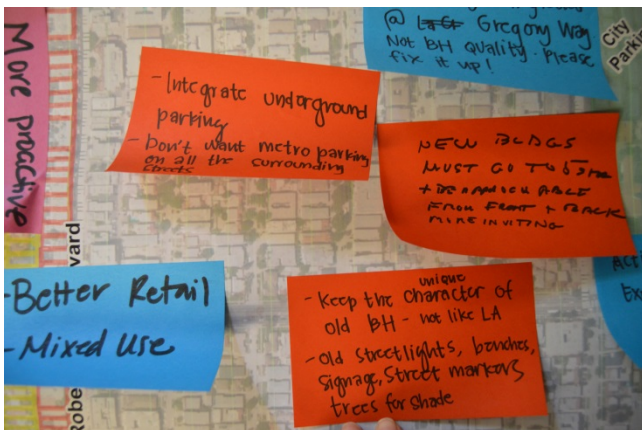 More proactive
@ Gregory Way
Not BH Quality. Please
fix it up!
City
Parking
- Integrate underground
parking
- Don't want metro parking
on all the surrounding
streets
NEW BLDGS
MUST GO TO
+ BE APPROACHABLE
FROM FRONT + BACK
MORE INVITING
vard
Robe
- Better Retail
- Mixed Use
unique
- Keep the character of
old BH - not like LA
- Old streetlights, benches,
signage, Street markers
trees for shade